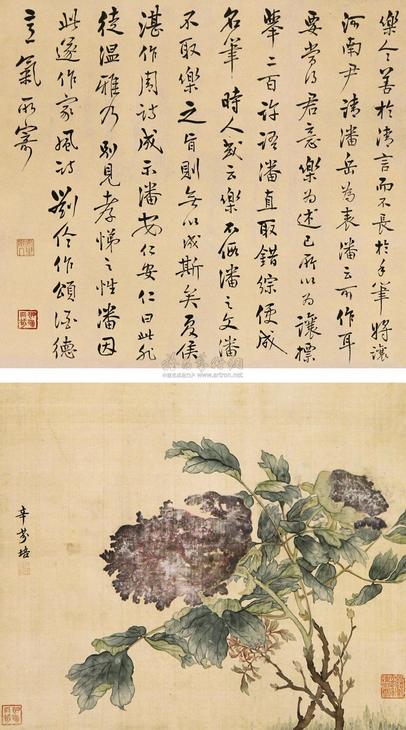 樂令善於清言而不長於手筆將讓
河南尹請潘岳為表潘云可作耳
要當得君意樂為述己所以為讓標
舉二百許語潘直取錯綜便成
名筆時人咸云樂不假潘之文潘
不取樂之旨則無以成斯矣夏侯
湛作周詩成示潘安仁安仁曰此非
徒溫雅乃別見孝悌之性潘因
此遂作家風詩劉伶作頌酒德
意氣所寄
www.artron.net